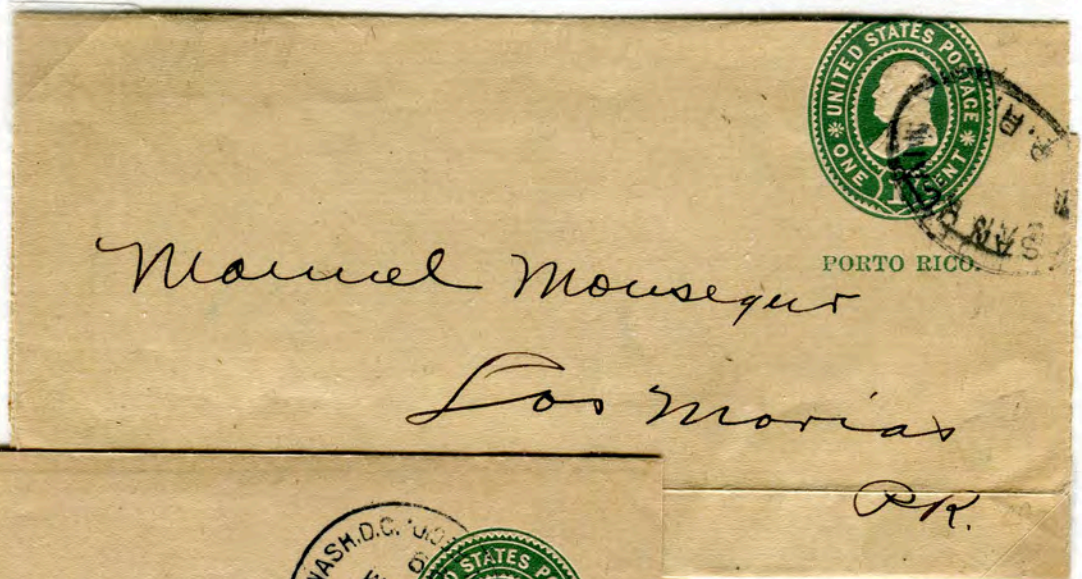 UNITED STATES POSTAGE
ONE 1 CENT
PORTO RICO.
SAN
P.R.
Manuel Monsegur
Las Marias
P.R.
WASH.D.C.
STATES